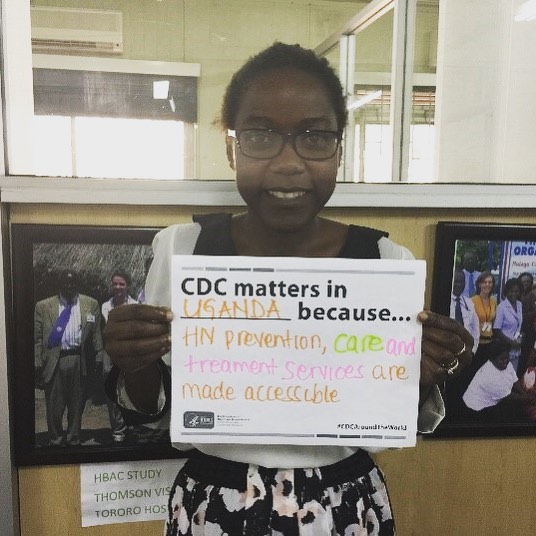 CDC matters in
UGANDA because...
HIV prevention, care and
treament services are
made accessible
CDC
#CDCAroundTheWorld
ORGA
HBAC STUDY
THOMSON VIS
TORORO HOS